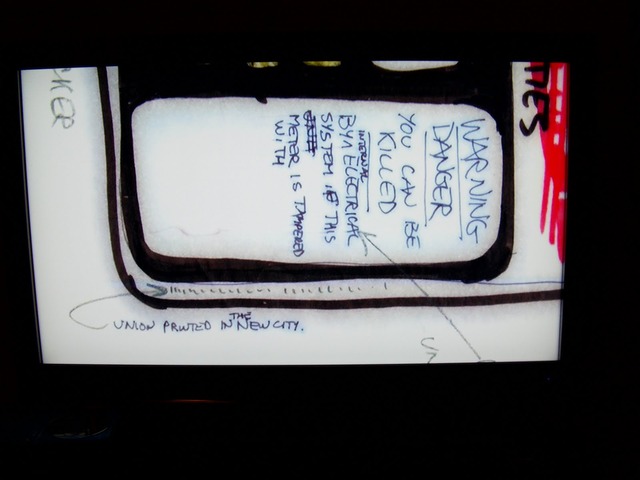 WARNING
DANGER
YOU CAN BE
KILLED
INTERNAL
BY ELECTRICAL
SYSTEM IF THIS
METER IS TAMPERED
WITH
THE
UNION PRINTED IN NEW CITY.